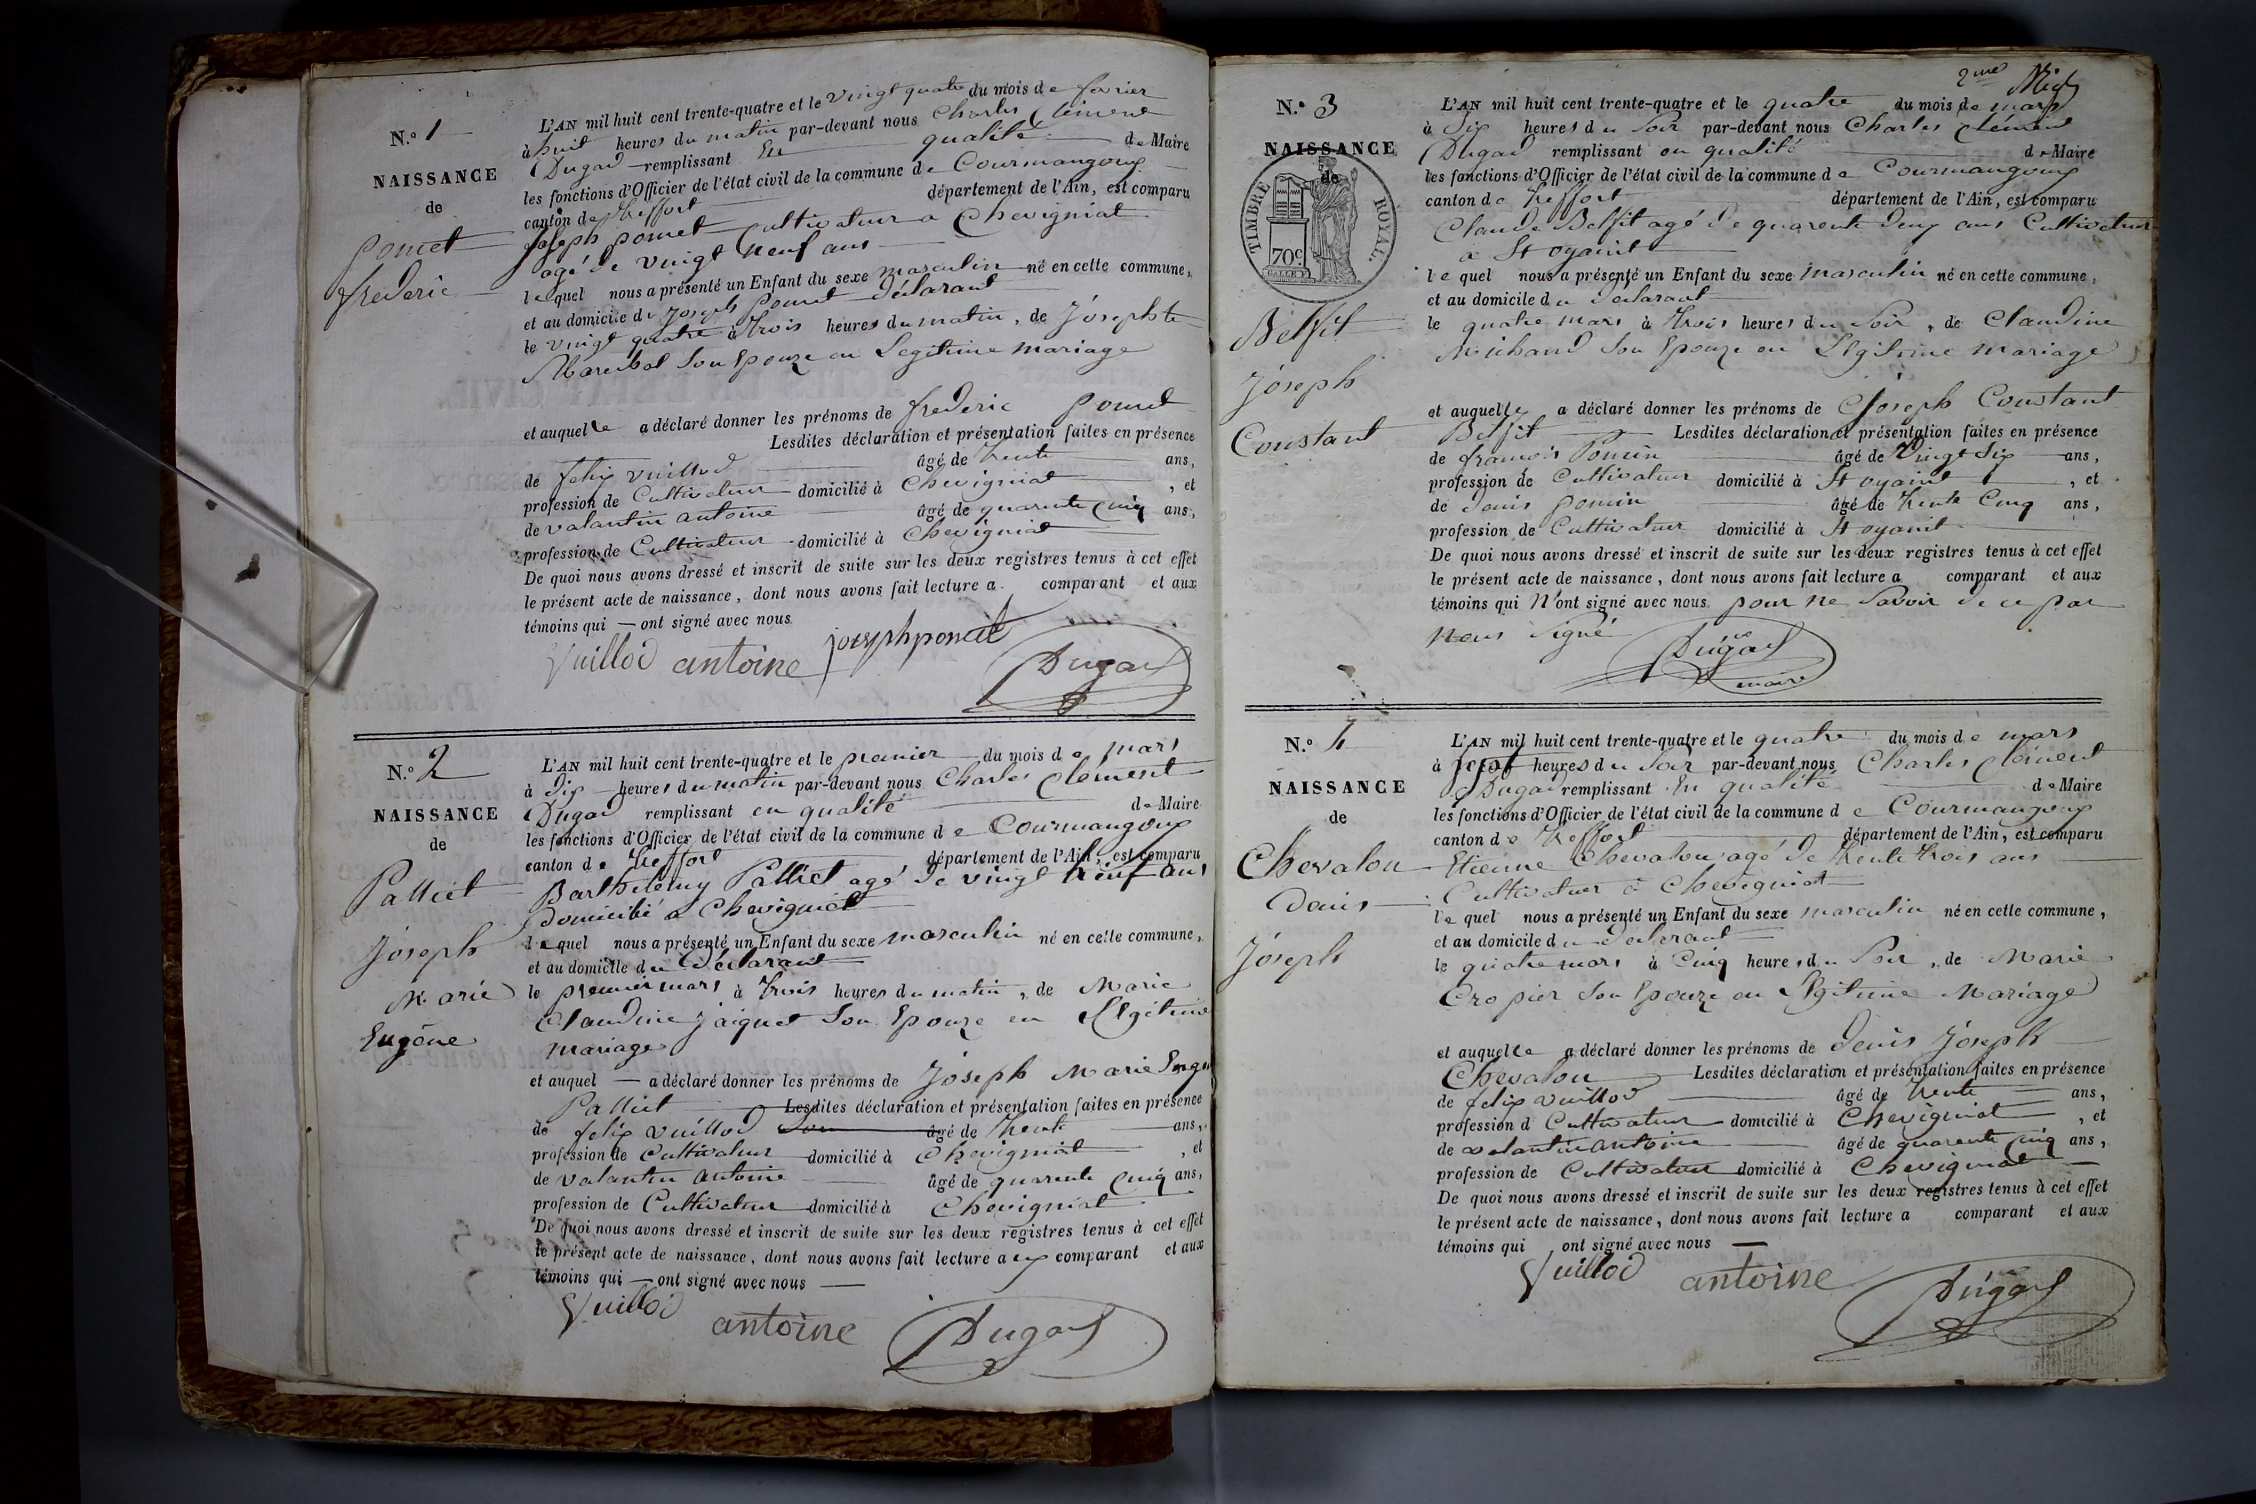 N.º 1
NAISSANCE
de
pomet
frederic
L'AN mil huit cent trente-quatre et le vingt quatre du mois de fevrier
à huit heures du matin par-devant nous Charles Clément
Dugad remplissant en qualité de Maire
les fonctions d'Officier de l'état civil de la commune de Courmangoux
canton de treffort département de l'Ain, est comparu
joseph pomet Cultivateur a Chevigniat
agé de vingt neuf ans
lequel nous a présenté un Enfant du sexe masculin né en cette commune,
et au domicile du joseph pomet déclarant
le vingt quatre à trois heures du matin, de josephte
Marechal son Epouze en Legitime mariage
et auquelle a déclaré donner les prénoms de frederic pomet
Lesdites déclaration et présentation faites en présence
de felix vuillod âgé de trente ans,
profession de Cultivateur domicilié à Chevigniat, et
de valantin antoine âgé de quarente cinq ans,
profession de Cultivateur domicilié à Chevigniat
De quoi nous avons dressé et inscrit de suite sur les deux registres tenus à cet effet
le présent acte de naissance, dont nous avons fait lecture a comparant et aux
témoins qui — ont signé avec nous
Vuillod antoine joseph pomet Dugad
N.º 2
NAISSANCE
de
Palliet
joseph
Marie
Eugéne
L'AN mil huit cent trente-quatre et le premier du mois de mars
à dix heures du matin par-devant nous Charles Clément
Dugad remplissant en qualité de Maire
les fonctions d'Officier de l'état civil de la commune de Courmangoux
canton de treffort département de l'Ain, est comparu
Barthelemy Palliet agé de vingt neuf ans
domicilié a Chevigniat
lequel nous a présenté un Enfant du sexe masculin né en cette commune,
et au domicile du Déclarant
le premier mars à trois heures du matin, de Marie
Claudine jaiquet son Epouze en Légitime
mariage
et auquel — a déclaré donner les prénoms de joseph Marie Euge
Palliet Lesdites déclaration et présentation faites en présence
de felix vuillod âgé de trente ans,
profession de Cultivateur domicilié à Chevigniat, et
de valantin antoine âgé de quarente cinq ans,
profession de Cultivateur domicilié à Chevigniat
De quoi nous avons dressé et inscrit de suite sur les deux registres tenus à cet effet
le présent acte de naissance, dont nous avons fait lecture a comparant et aux
témoins qui — ont signé avec nous —
Vuillod antoine Dugad
2me
N.º 3
NAISSANCE
de
TIMBRE ROYAL.
70c
Belfit
joseph
Constant
L'AN mil huit cent trente-quatre et le quatre du mois de mars
à Six heures du Soir par-devant nous Charles Clément
Dugad remplissant en qualité de Maire
les fonctions d'Officier de l'état civil de la commune de Courmangoux
canton de treffort département de l'Ain, est comparu
Claude Belfit agé de quarente deux ans Cultivateur
a St oyaint
lequel nous a présenté un Enfant du sexe masculin né en cette commune,
et au domicile du declarant
le quatre mars à trois heures du Soir, de Claudine
Michaud son Epouze en Legitime mariage
et auquelle a déclaré donner les prénoms de joseph Constant
Belfit Lesdites déclaration et présentation faites en présence
de francois Pomin âgé de vingt Six ans,
profession de Cultivateur domicilié à St oyaint, et
de Denis pomin âgé de trente Cinq ans,
profession de Cultivateur domicilié à St oyaint
De quoi nous avons dressé et inscrit de suite sur les deux registres tenus à cet effet
le présent acte de naissance, dont nous avons fait lecture a comparant et aux
témoins qui n'ont signé avec nous pour ne Savoir de ce par
nous signé
Dugad
maire
N.º 4
NAISSANCE
de
Chevalon
Denis
joseph
L'AN mil huit cent trente-quatre et le quatre du mois de mars
à heures du Soir par-devant nous Charles Clément
Dugad remplissant En qualité de Maire
les fonctions d'Officier de l'état civil de la commune de Courmangoux
canton de treffort département de l'Ain, est comparu
Etienne Chevalon agé de trente trois ans
Cultivateur a Chevigniat
lequel nous a présenté un Enfant du sexe masculin né en cette commune,
et au domicile du declarant
le quatre mars à Cinq heures du Soir, de Marie
Cropier son Epouze en Légitime Mariage
et auquelle a déclaré donner les prénoms de Denis joseph
Chevalon Lesdites déclaration et présentation faites en présence
de felix vuillod âgé de trente ans,
profession d Cultivateur domicilié à Chevigniat, et
de valantin antoine âgé de quarente cinq ans,
profession de Cultivateur domicilié à Chevigniat
De quoi nous avons dressé et inscrit de suite sur les deux registres tenus à cet effet
le présent acte de naissance, dont nous avons fait lecture a comparant et aux
témoins qui ont signé avec nous —
Vuillod antoine Dugad